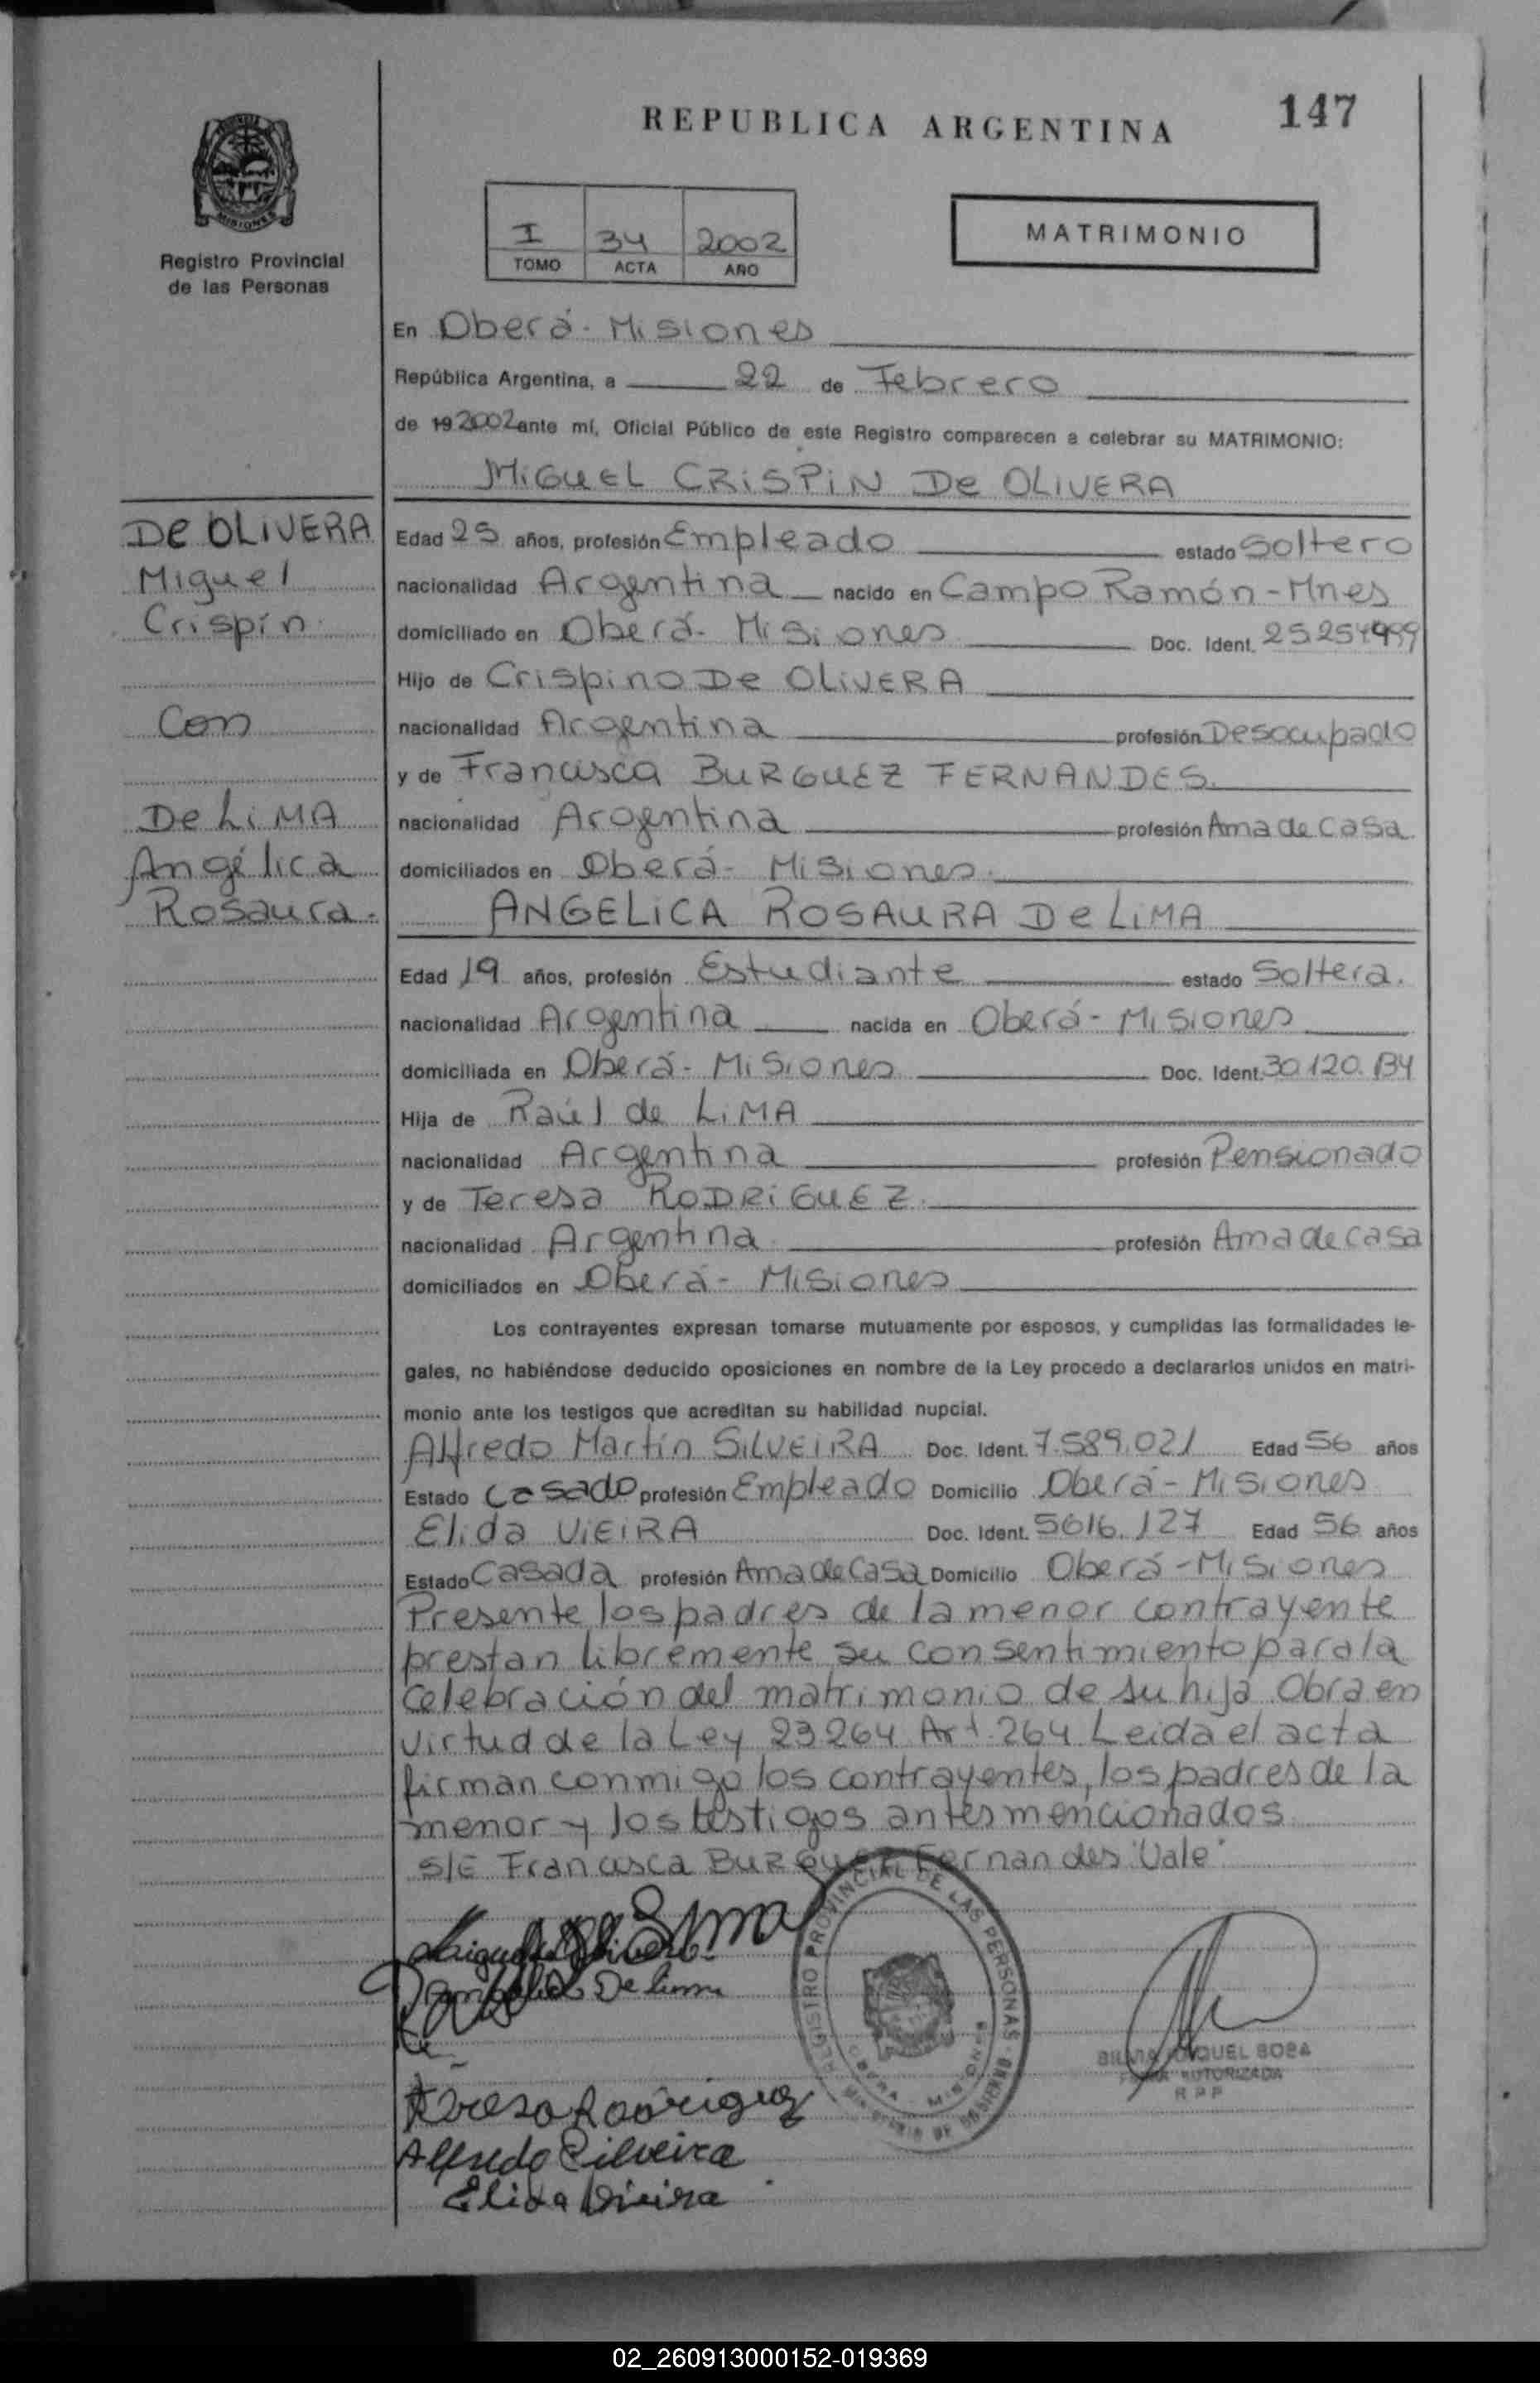 REPUBLICA ARGENTINA
147
MISIONES
Registro Provincial
de las Personas
I 34 2002
TOMO ACTA AÑO
MATRIMONIO
En Oberá - Misiones
República Argentina, a 22 de Febrero
de 19 2002 ante mí, Oficial Público de este Registro comparecen a celebrar su MATRIMONIO:
MIGUEL CRISPIN De OLIVERA
De OLIVERA
Miguel
Crispín
Con
De LiMA
Angélica
Rosaura.
Edad 25 años, profesión Empleado estado Soltero
nacionalidad Argentina nacido en Campo Ramón - Mnes
domiciliado en Oberá - Misiones Doc. Ident. 25254999
Hijo de Crispino De OLIVERA
nacionalidad Argentina profesión Desocupado
y de Francisca BURGUEZ FERNANDES.
nacionalidad Argentina profesión Ama de Casa
domiciliados en Oberá - Misiones.
ANGELICA ROSAURA De LIMA
Edad 19 años, profesión Estudiante estado Soltera.
nacionalidad Argentina nacida en Oberá - Misiones
domiciliada en Oberá - Misiones Doc. Ident. 30.120.134
Hija de Raúl de LiMA
nacionalidad Argentina profesión Pensionado
y de Teresa RODRIGUEZ.
nacionalidad Argentina profesión Ama de casa
domiciliados en Oberá - Misiones
Los contrayentes expresan tomarse mutuamente por esposos, y cumplidas las formalidades le-
gales, no habiéndose deducido oposiciones en nombre de la Ley procedo a declararlos unidos en matri-
monio ante los testigos que acreditan su habilidad nupcial.
Alfredo Martín SILVEIRA Doc. Ident. 7.589.021 Edad 56 años
Estado Casado profesión Empleado Domicilio Oberá - Misiones
Elida VIEIRA Doc. Ident. 5616.127 Edad 56 años
Estado Casada profesión Ama de Casa Domicilio Oberá - Misiones
Presente los padres de la menor contrayente
prestan libremente su consentimiento para la
celebración del matrimonio de su hija. Obra en
virtud de la Ley 23264 Art. 264. Leida el acta
firman conmigo los contrayentes, los padres de la
menor y los testigos antes mencionados.
S/E Francisca BURGUEZ Fernandes "Vale"
REGISTRO PROVINCIAL DE LAS PERSONAS
OBERA - MISIONES
MINISTERIO DE GOBIERNO
De Lima
RAQUEL SOSA
FIRMA AUTORIZADA
R P P
Teresa Rodriguez
Alfredo Silveira
Elida Vieira
02_260913000152-019369